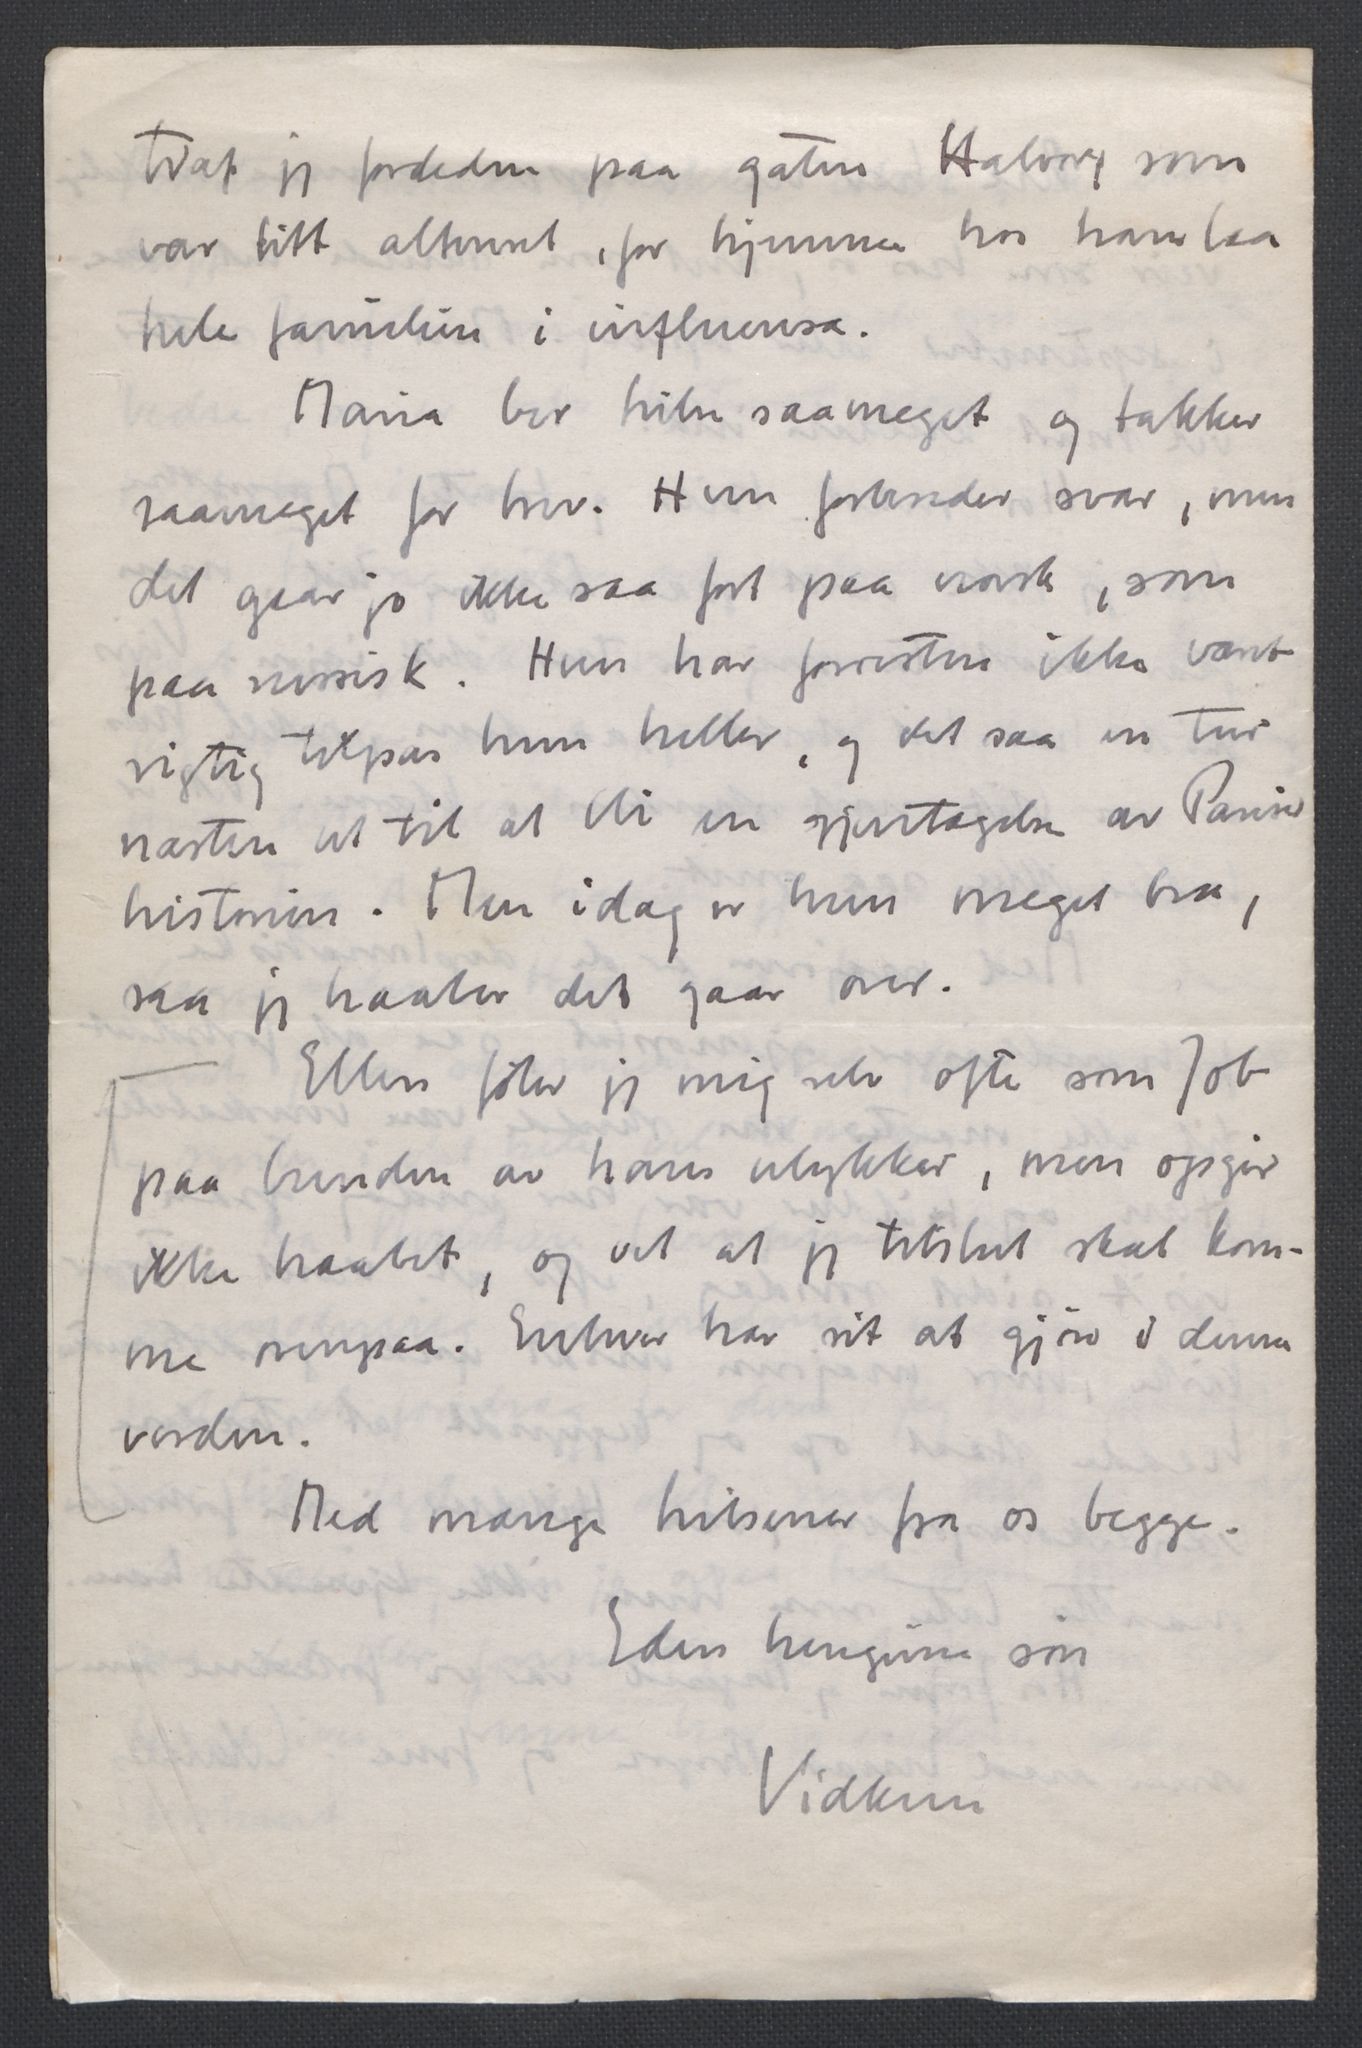 Traf jeg forleden paa gaten Halvor, som
var litt alterert, for hjemme hos ham laa
hele familien i influensa.
Maria ber hilse saameget og takker
saameget for brev. Hun forbereder svar, men
det gaar jo ikke saa fort paa norsk, som
paa russisk. Hun har forresten ikke vært
rigtig tilpas hun heller, og det saa en tur
næsten ut til at bli en gjentagelse av Pariser
historien. Men idag er hun meget bra,
saa jeg haaber det gaar over.
Ellers føler jeg mig selv ofte som Job
paa bunden av hans ulykker, men opgir
ikke haabet, og vet at jeg tilslut skal kom-
me ovenpaa. Enhver har sit at gjøre i denne
verden.
Med mange hilsener fra os begge.
Eders hengivne søn
Vidkun